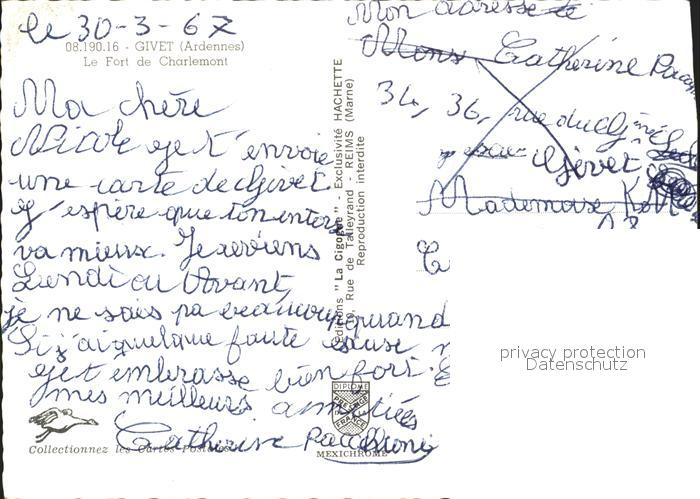 le 30-3-67
08.190.16 - GIVET (Ardennes)
Le Fort de Charlemont
Ma chère
Nicole je t'envoie
une carte de Givet.
J'espère que ton entorse
va mieux. Je reviens
Lundi ou Avant,
je ne sais pa beaucoup quand
Si j'ai quelque faute
je t embrasse bien fort.
mes meilleurs amitiées
Catherine Paccussoni
Collectionnez les Cartes Postales
Editions "La Cigogne" - Exclusivité HACHETTE
Rue de Talleyrand - REIMS (Marne)
Reproduction interdite
DIPLOME
PRESTIGE
DE LA
FRANCE
MEXICHROME
Mon adresse
Mons Catherine
34, 36, rue du
Givet
Mademoise
privacy protection
Datenschutz